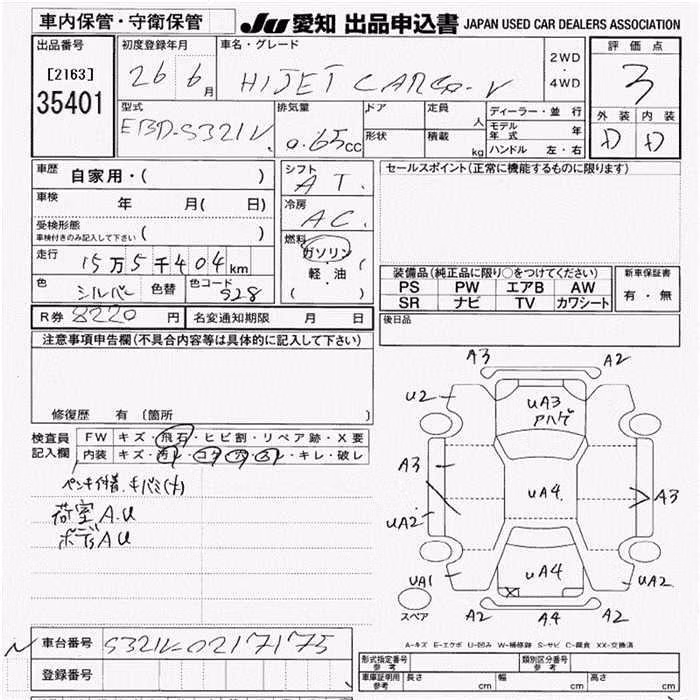 車内保管・守衛保管 JU 愛知 出品申込書 JAPAN USED CAR DEALERS ASSOCIATION
出品番号 初度登録年月 車名・グレード 2WD・4WD 評価点
[2163] 26 6月 HIJET CARGO-V 3
35401
型式 排気量 ドア 定員 人 ディーラー・並行 外装 内装
EBD-S321V. 0.65cc 形状 積載 kg モデル年式 年 D D
ハンドル 左・右
車歴 自家用・( ) シフト AT. セールスポイント(正常に機能するものに限ります)
車検 年 月( 日) 冷房 AC.
受検形態 車検付きのみ記入して下さい ( ) 燃料 ガソリン
走行 15万5千404km 軽・油
色 シルバー 色替 色コード S28 ( )
装備品(純正品に限り○をつけてください) 新車保証書
PS PW エアB AW 有・無
SR ナビ TV カワシート
R券 8220円 名変通知期限 月 日 後日品
注意事項申告欄(不具合内容等は具体的に記入して下さい)
修復歴 有 〔箇所 〕
検査員記入欄 FW キズ・飛石・ヒビ割・リペア跡・X要
内装 キズ・汚レ・コゲ・穴・スレ・キレ・破レ
ペンキ付着、キバミ(大)
荷室A.U
ボデーAU
A3 A2
U2 UA3
アハゲ
A3 UA4 A3
UA2
UA1 UA4 UA2
スペア A2 A4 A2
A-キズ E-エクボ U-凹み W-補修跡 S-サビ C-腐食 XX-交換済
車台番号 S321V-0217175
登録番号
形式指定番号 参考 類別区分番号 参考
車庫証明用 参考 長さ cm 幅 cm 高さ cm